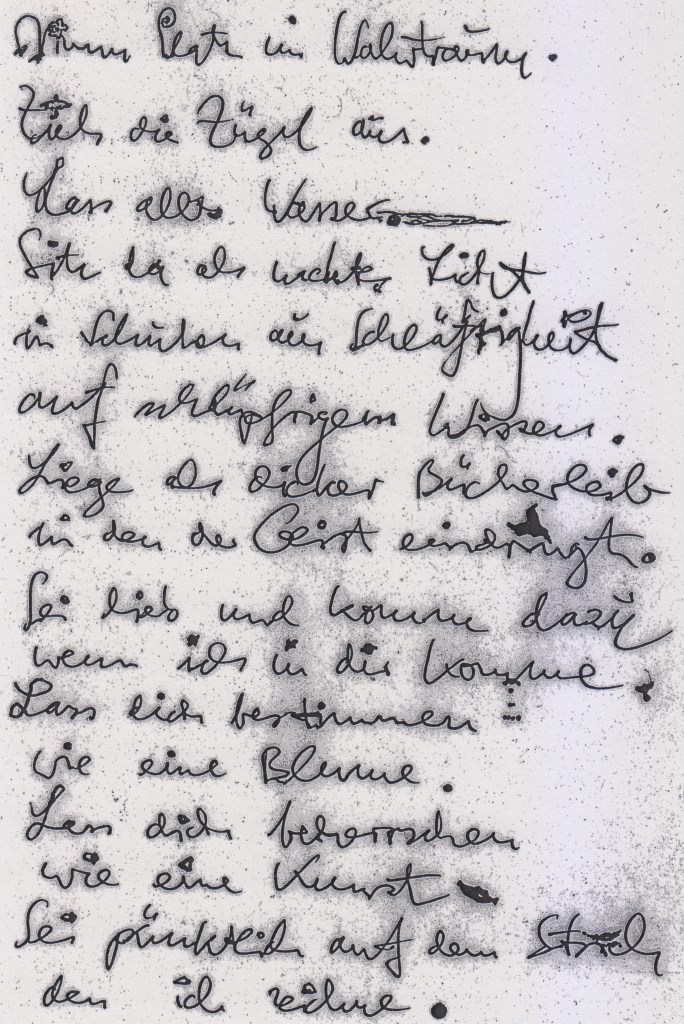 Nimm Platz im Wahrtraum.
Zieh die Zügel aus.
Lass alles Wasser
Sitz da als nacktes Licht
in Schuhen aus Schläfrigkeit
auf schlüpfrigem Wissen.
Liege als dicker Bücherleib
in den der Geist eindringt.
Sei lieb und komme dazu
wenn ich in dir komme.
Lass dich bestimmen
wie eine Blume.
Lass dich beherrschen
wie eine Kunst
Sei pünktlich auf dem Strich
den ich zeichne.